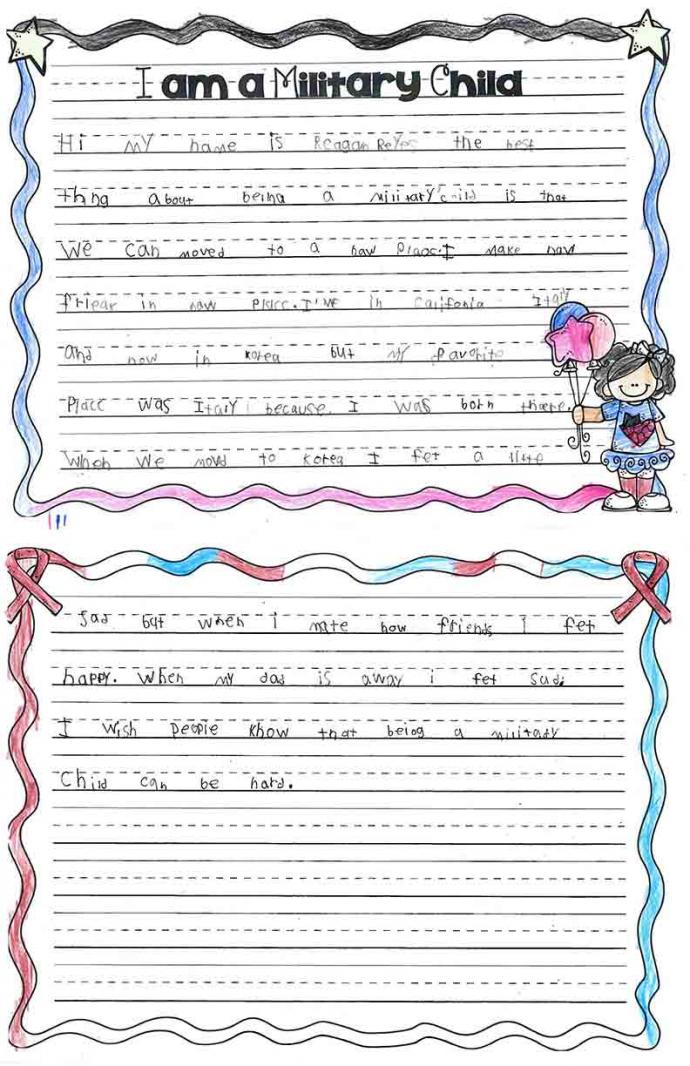 I am a Military Child
Hi my name is Reagan Reyes the best
thng about being a military child is that
We can moved to a naw place. I make naw
friear in naw place. I'VE in Califonia Italy
and now in korea but my favorite
Place was Italy because I was born theere.
When we movd to Korea I fet a litte
Sad but when i mate now friends I fet
happy. When my dad is away i fet sad.
I wish people know that being a military
Child can be hard.